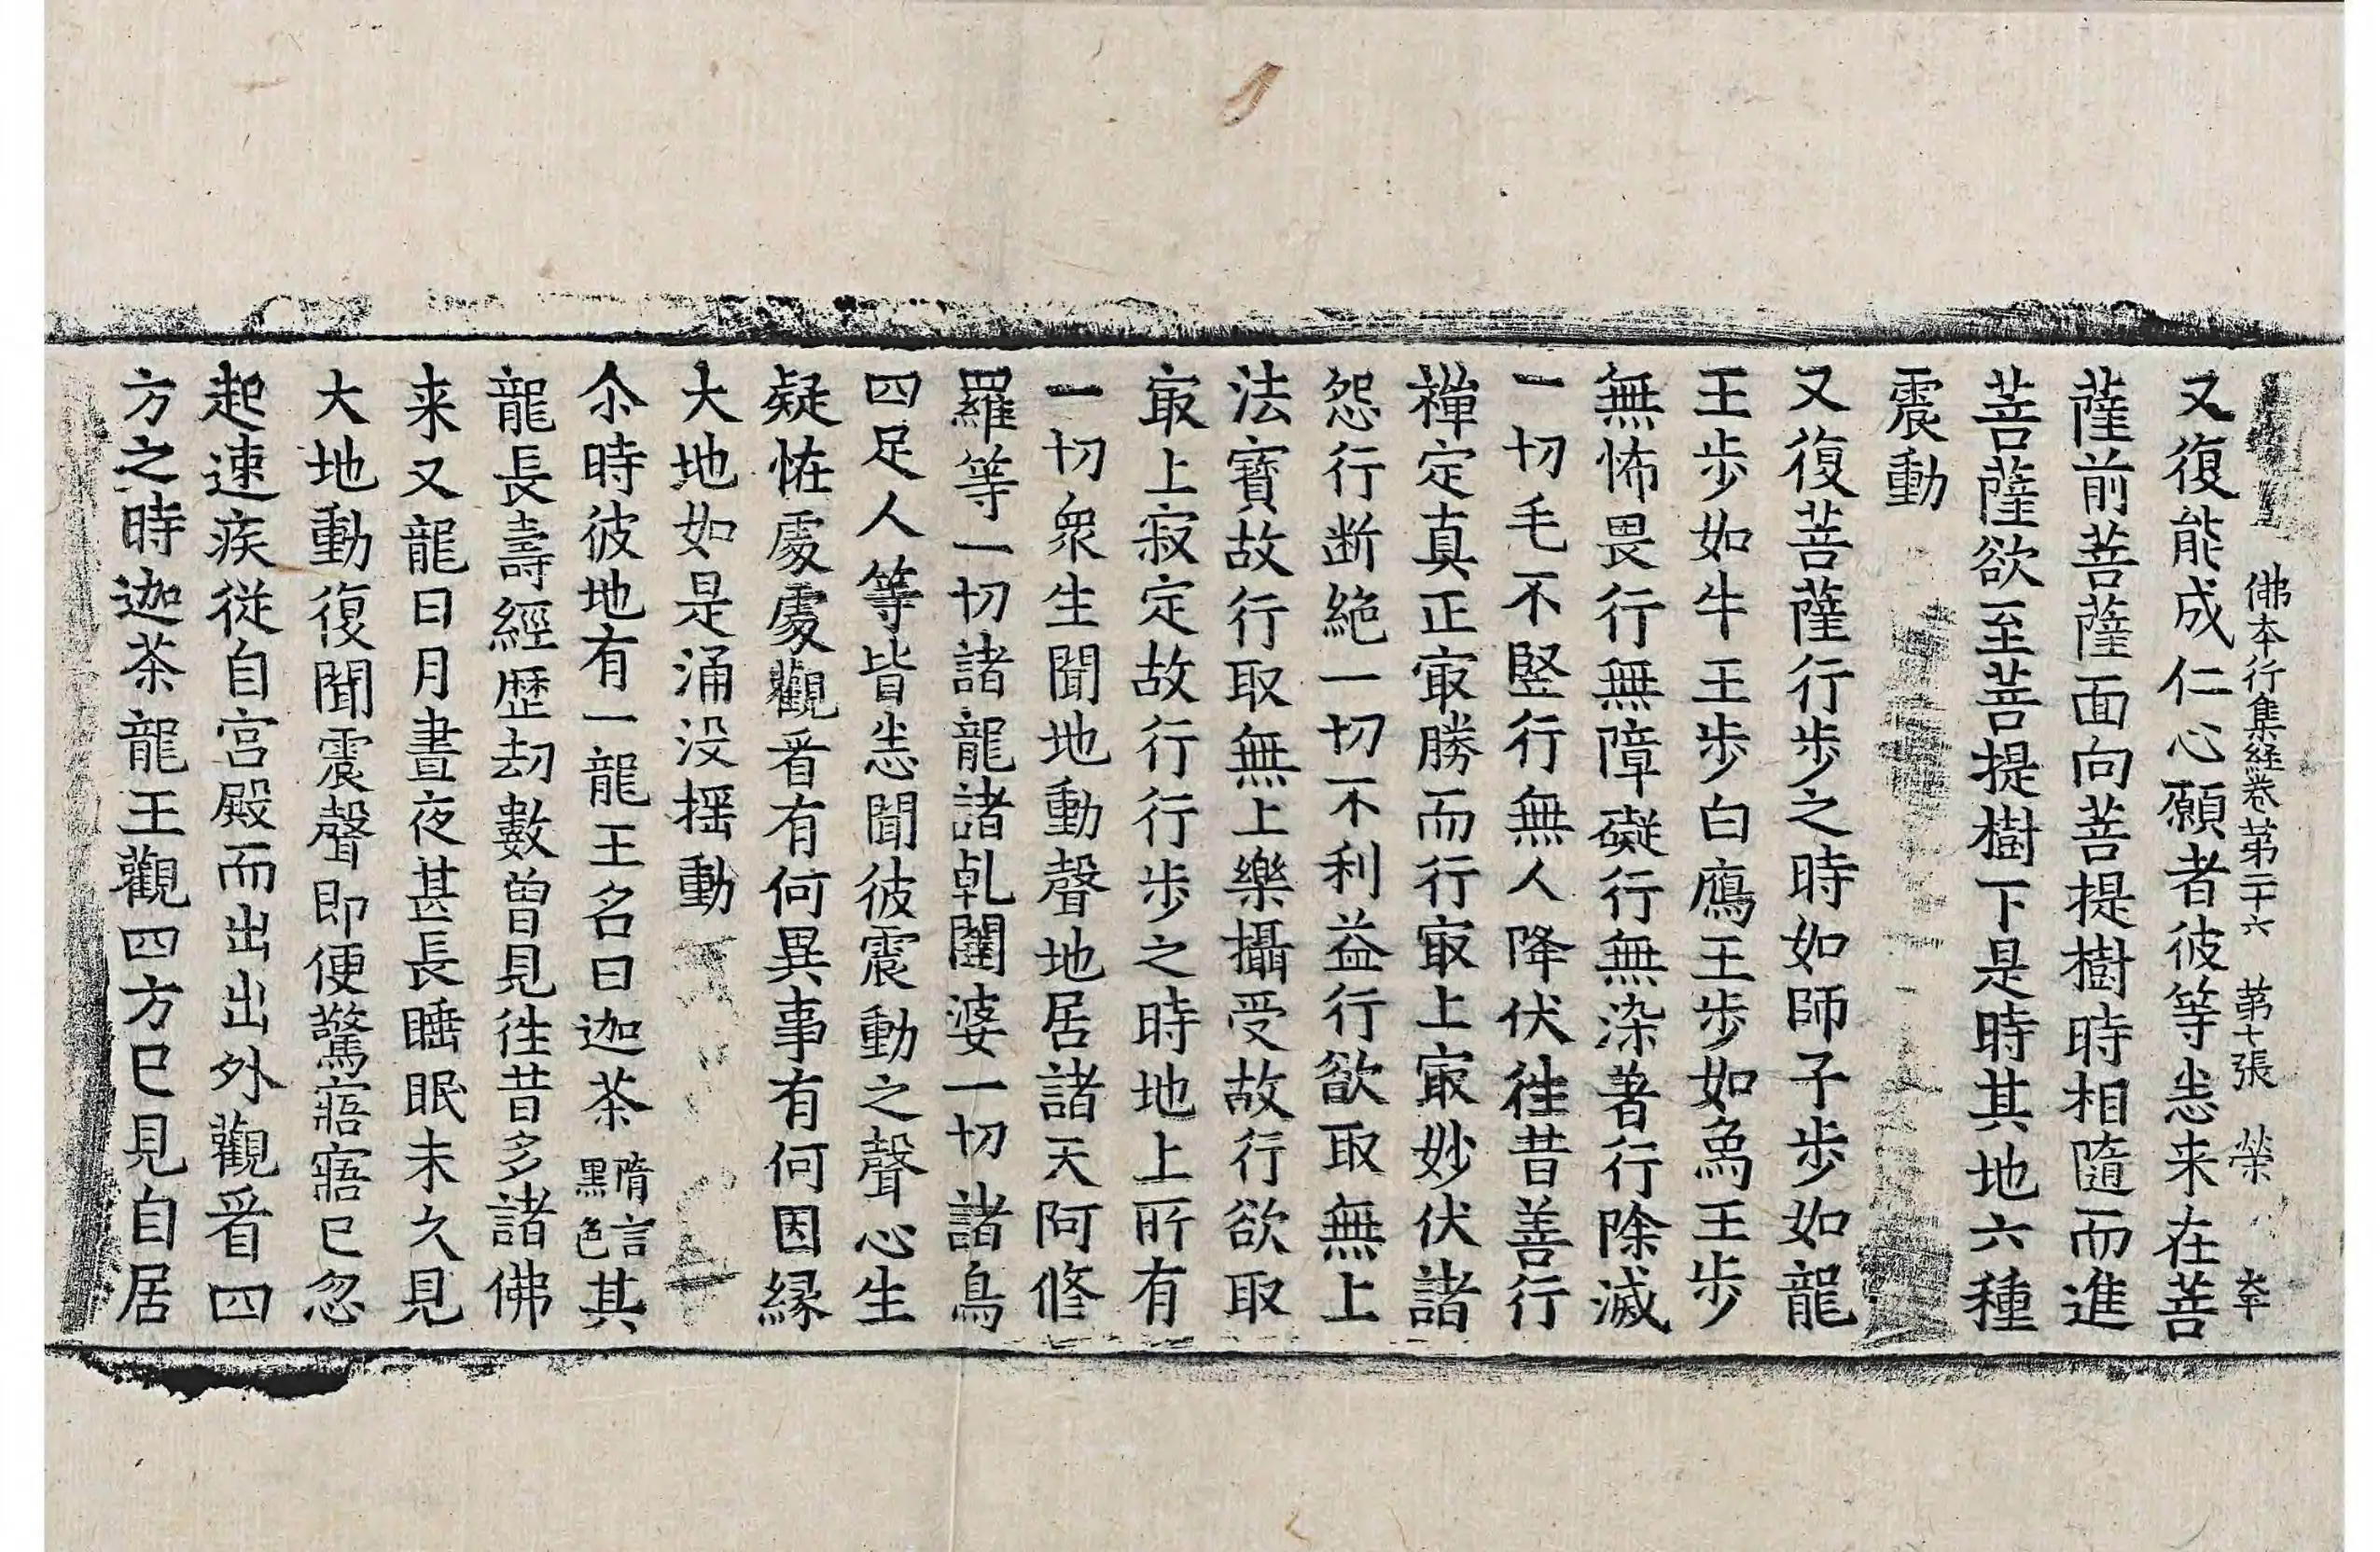 佛本行集経卷苐二十六 苐十張 榮
又復能成仁心願者彼等𢘻来在菩
薩前菩薩面向菩提樹時相隨而進
菩薩欲至菩提樹下是時其地六種
震動
又復菩薩行歩之時如師子歩如龍
王歩如牛王歩白鴈王歩如𤉢王歩
無怖畏行無障礙行無染著行除滅
一切毛不竪行無人降伏徃昔善行
禪定真正㝡勝而行㝡上㝡妙伏諸
怨行断絶一切不利益行欲取無上
法寳故行取無上樂攝受故行欲取
㝡上寂定故行行歩之時地上所有
一切衆生聞地動聲地居諸天阿修
羅等一切諸龍諸乹闥婆一切諸鳥
四足人等皆𢘻聞彼震動之聲心生
疑恠處處觀看有何異事有何因縁
大地如是涌没揺動
尒時彼地有一龍王名曰迦茶隋言黒色其
龍長壽經歴劫數曽見徃昔多諸佛
来又龍日月晝夜甚長睡眠未久見
大地動復聞震聲即便驚寤寤已忽
起速疾從自宫殿而出出外觀看四
方之時迦茶龍王觀四方已見自居